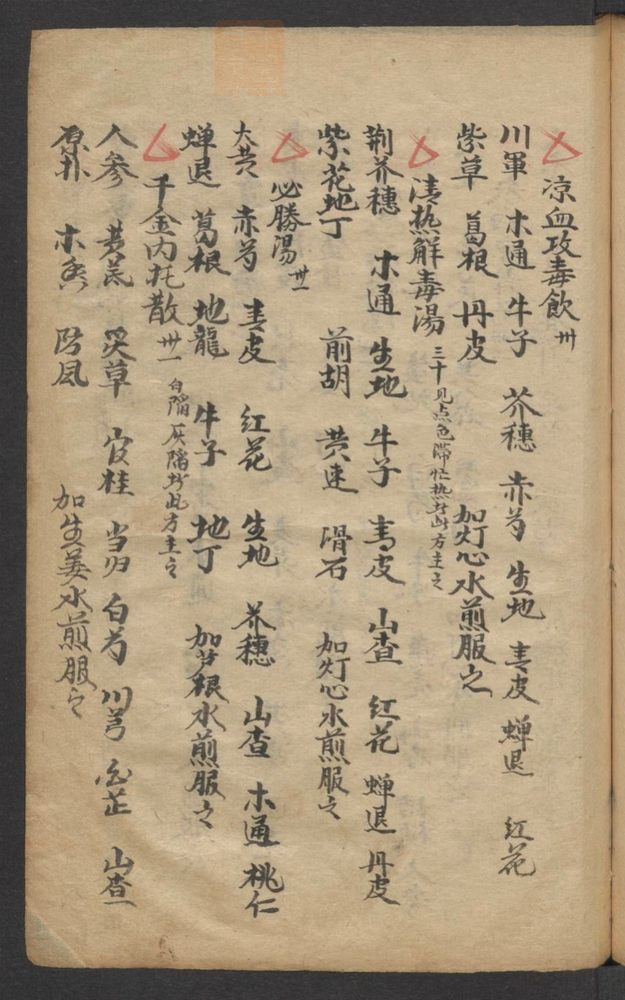 凉血攻毒飲 卅
川軍 木通 牛子 芥穗 赤芍 生地 青皮 蟬退 红花
紫草 葛根 丹皮 加灯心水煎服之
清热解毒湯 三十見点色滞 热 此方主之
荆芥穗 木通 生地 牛子 青皮 山查 红花 蟬退 丹皮
紫花地丁 前胡 黄連 滑石 加灯心水煎服之
必勝湯 卅一
大黄 赤芍 青皮 红花 生地 芥穗 山查 木通 桃仁
蟬退 葛根 地龍 牛子 地丁 加芦根水煎服之
千金内托散 卅一 白陷灰陷 此方主之
人參 黄芪 炙草 官桂 当归 白芍 川芎 白芷 山查
厚朴 木香 防風 加生姜水煎服之